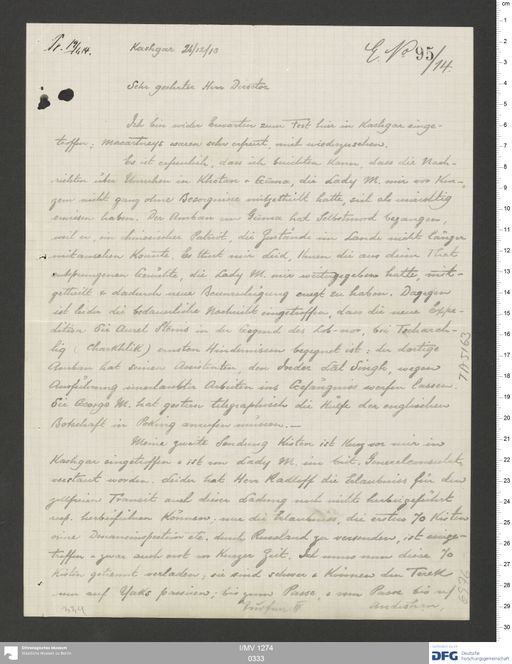 Pr. 19/1.14.
Kashgar 26/12/13
E. No 95/14.
Sehr geehrter Herr Director
Ich bin wider Erwarten zum Fest hier in Kashgar einge-
troffen; Macartneys waren sehr erfreut, mich wiederzusehen.
Es ist erfreulich, dass ich berichten kann, dass die Nach-
richten über Unruhen in Khotan & Guma, die Lady M. mir vor Kur-
zem nicht ganz ohne Besorgnisse mitgetheilt hatte, sich als unrichtig
erwiesen haben. Der Amban in Guma hat Selbstmord begangen,
weil er, ein chinesischer Patriot, die Zustände im Lande nicht länger
mitansehen konnte. Es thut mir Leid, Ihnen die aus dieser That
entsprungenen Gerüchte, die Lady M. mir weitergegeben hatte, mit-
getheilt & dadurch neue Beunruhigung erregt zu haben. Dagegen
ist leider die bedauerliche Nachricht eingetroffen, dass die neue Expe-
dition Sir Aurel Steins in der Gegend des Lob-nor, bei Tscharch-
lig (Charkhlik) ernsten Hindernissen begegnet ist: der dortige
Amban hat seinen Assistenten, den Inder Lal Singh, wegen
Ausführung unerlaubter Arbeiten ins Gefängniss werfen lassen.
Sir George M. hat gestern telegraphisch die Hülfe der englischen
Botschaft in Peking anrufen müssen. —
Meine zweite Sendung Kisten ist kurz vor mir in
Kashgar eingetroffen & ist von Lady M. im brit. Generalconsulat
verstaut worden. Leider hat Herr Radloff die Erlaubniss für den
zollfreien Transit auch dieser Ladung noch nicht herbeigeführt
resp. herbeiführen können; nur die Erlaubniss, die ersten 70 Kisten
ohne Douaneninspection etc. durch Russland zu versenden, ist einge-
troffen & zwar auch erst vor kurzer Zeit. Ich muss nun diese 70
Kisten getrennt verladen; sie sind schwer & können den Terek
nur auf Yaks passiren, bis zum Passe, & vom Passe bis auf
Andischan,
TA 5163
6976
334
Ethnologisches Museum
Staatliche Museen zu Berlin
I/MV 1274
0333
DFG
Deutsche
Forschungsgemeinschaft